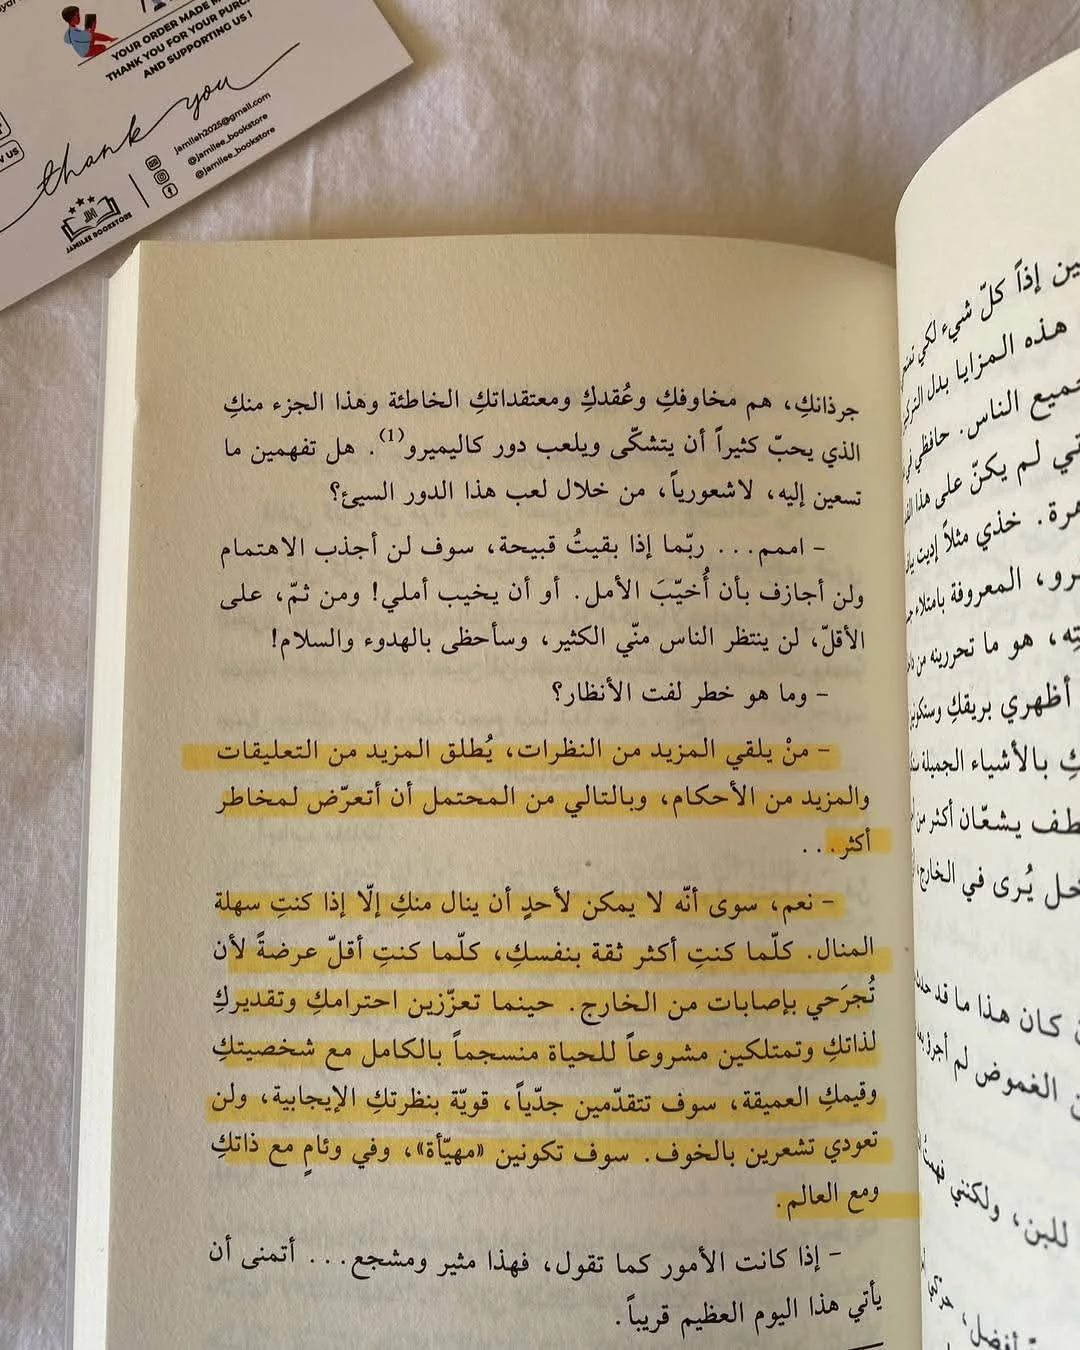 YOUR ORDER MADE
THANK YOU FOR YOUR PURC
AND SUPPORTING US !
thank you
jamilah2025@gmail.com
@jamilee_bookstore
@jamilee_bookstore
JAMILEE BOOKSTORE
W US
جرذانكِ، هم مخاوفكِ وعُقدكِ ومعتقداتكِ الخاطئة وهذا الجزء منكِ
الذي يحبّ كثيراً أن يتشكّى ويلعب دور كاليميرو(1). هل تفهمين ما
تسعين إليه، لاشعورياً، من خلال لعب هذا الدور السيئ؟
– اممم... ربّما إذا بقيتُ قبيحة، سوف لن أجذب الاهتمام
ولن أجازف بأن أُخيّبَ الأمل. أو أن يخيب أملي! ومن ثمّ، على
الأقلّ، لن ينتظر الناس منّي الكثير، وسأحظى بالهدوء والسلام!
– وما هو خطر لفت الأنظار؟
– منْ يلقي المزيد من النظرات، يُطلق المزيد من التعليقات
والمزيد من الأحكام، وبالتالي من المحتمل أن أتعرّض لمخاطر
أكثر...
– نعم، سوى أنّه لا يمكن لأحدٍ أن ينال منكِ إلّا إذا كنتِ سهلة
المنال. كلّما كنتِ أكثر ثقة بنفسكِ، كلّما كنتِ أقلّ عرضةً لأن
تُجرَحي بإصابات من الخارج. حينما تعزّزين احترامكِ وتقديركِ
لذاتكِ وتمتلكين مشروعاً للحياة منسجماً بالكامل مع شخصيتكِ
وقيمكِ العميقة، سوف تتقدّمين جدّياً، قويّة بنظرتكِ الإيجابية، ولن
تعودي تشعرين بالخوف. سوف تكونين «مهيّأة»، وفي وئامٍ مع ذاتكِ
ومع العالم.
– إذا كانت الأمور كما تقول، فهذا مثير ومشجع... أتمنى أن
يأتي هذا اليوم العظيم قريباً.
إذاً كلّ شيء لكي
هذه المزايا بدل
جميع الناس. حافظي
لم يكنّ على هذا
خذي مثلاً إديت
المعروفة بامتلاء
هو ما تحررينه من
أظهري بريقكِ
بالأشياء الجميلة
يشعّان أكثر من
يُرى في الخارج
كان هذا ما قد
الغموض لم
للبن، ولكنني فهمتُ
أفضل،